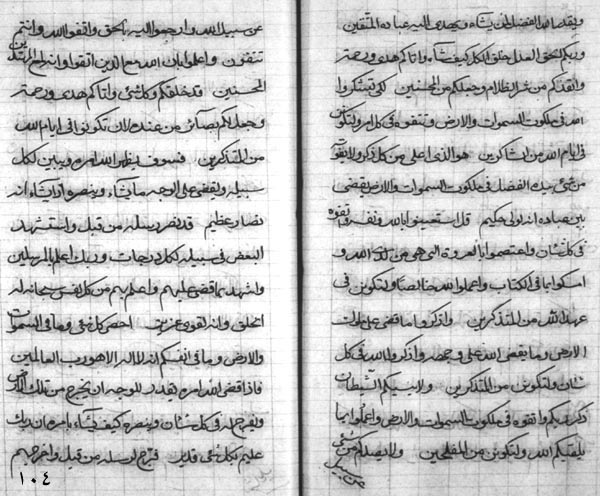 ويقدر الله الفضل لمن يشاء ويهدي اليه عباده المتقين
وربكم الحق العدل خلق الكل كيف شاء واتاكم هدى ورحمة
وانقذكم من شر الظلام وجعلكم من المحسنين لكي تشكروا
الله في ملكوت السموات والارض وتتقوه في كل امر ولتكونن
في ايام الله من الشاكرين هو الذي اعلى من كل ذكر ولا يفوته
من شئ بيده الفضل في ملكوت السموات والارض يقضي
بين عباده انه لولي حكيم قل استعينوا بالله واتقوه
في كل شان واعتصموا بالعروة التي هي من لدى الله و
امسكوا بما في الكتاب واعملوا لله خالصا ولتكونن في
عهد الله من المتذكرين واذكروا ما قضى على ملأت
الارض وما يقضي الله على واذكروا الله في كل
شان ولتكونن من المتذكرين ولا ينسيكم الشيطان
ذكر ربكم واتقوه في ملكوت السموات والارض واعملوا بما
يلقيكم الله ولتكونن من المفلحين ولا يصدنكم من شئ
عن سبيل
عن سبيل الله وارجعوا اليه بالحق واتقوا الله وانتم
تتقون واعلموا بان الله مع الذين اتقوا وانه ارحم المهتدين
المحسنين قد خلقكم وكل شئ واتاكم هدى ورحمة
وجعل لكم بصائر من عنده لان تكونن في ايام الله
من المتذكرين فسوف يظهر الله امره ويبين لكل
سبيله ويقضي على الوجه ما يشاء وينصره اذا يشاء انه
نصار عظيم قد نصر رسله من قبل واستشهد
البعض في سبيله لكل درجات وربك اعلم بالمرسلين
واشهد بما قضى عليهم واعلم بهم من كل نفس سبحانه له
الخلق وانه لقوي عزيز احصى كل شئ وما في السموات
والارض وما في انفسكم انه لا اله الا هو رب العالمين
فاذا قضى الله امره يقدر للوجه ان يخرج من تلك الارض
وليفرج له في كل شان وينصره كيف يشاء بامره ان ربك
عليم بكل شئ قدير فرج لرسله من قبل واخرجهم
١٠٤